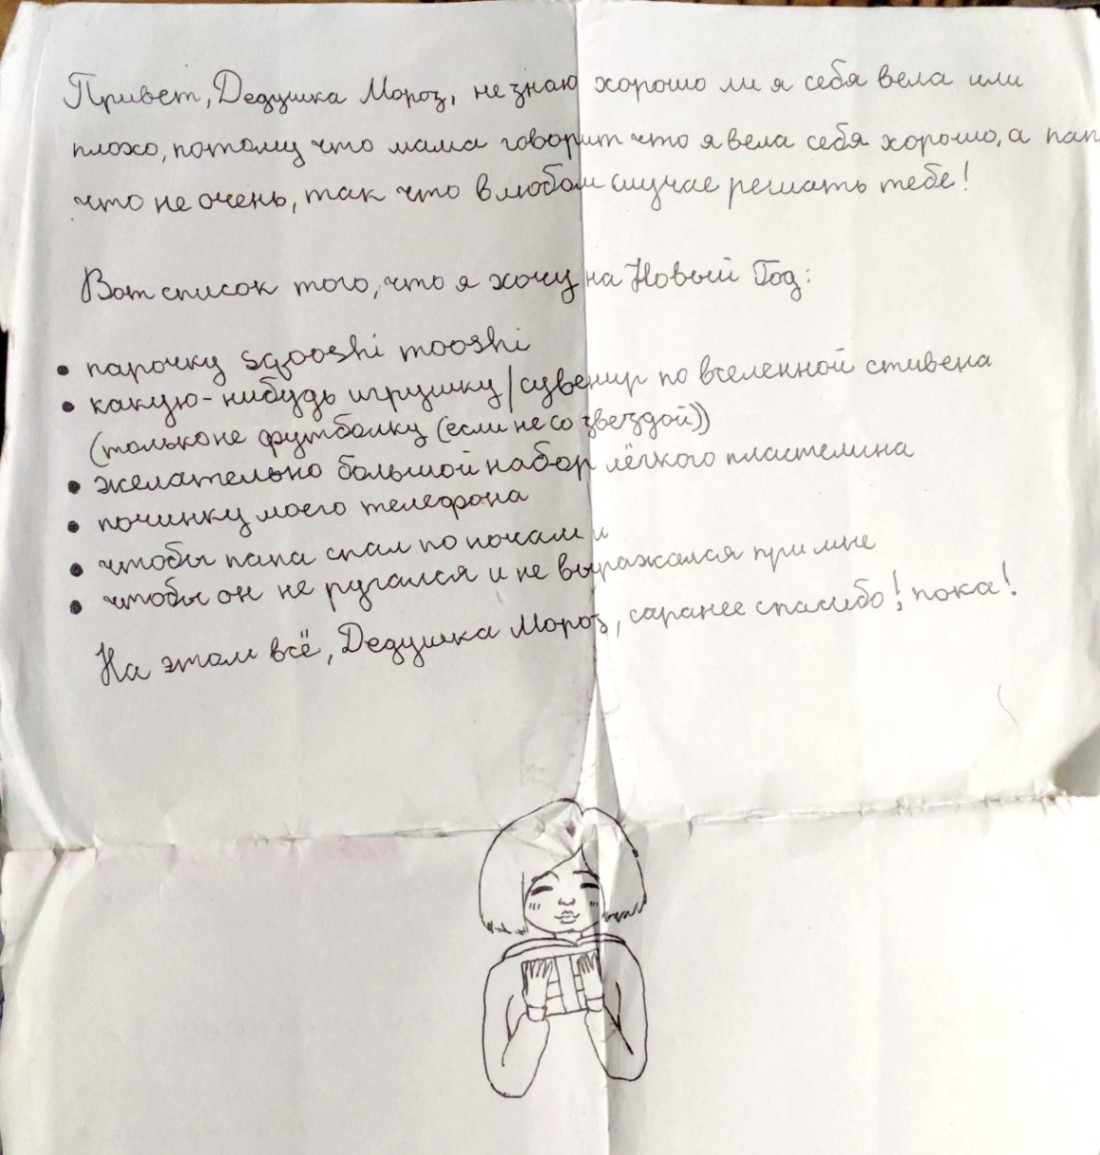 Привет, Дедушка Мороз, не знаю хорошо ли я себя вела или
плохо, потому что мама говорит что я вела себя хорошо, а пап
что не очень, так что в любом случае решать тебе!
Вот список того, что я хочу на Новый Год:
• парочку sqooshi mooshi
• какую-нибудь игрушку/сувенир по вселенной стивена
(только не футболку (если не со звездой))
• желательно большой набор лёгкого пластелина
• починку моего телефона
• чтобы папа спал по ночам и
• чтобы он не ругался и не выражался при мне
На этом всё, Дедушка Мороз, саранее спасибо! пока!